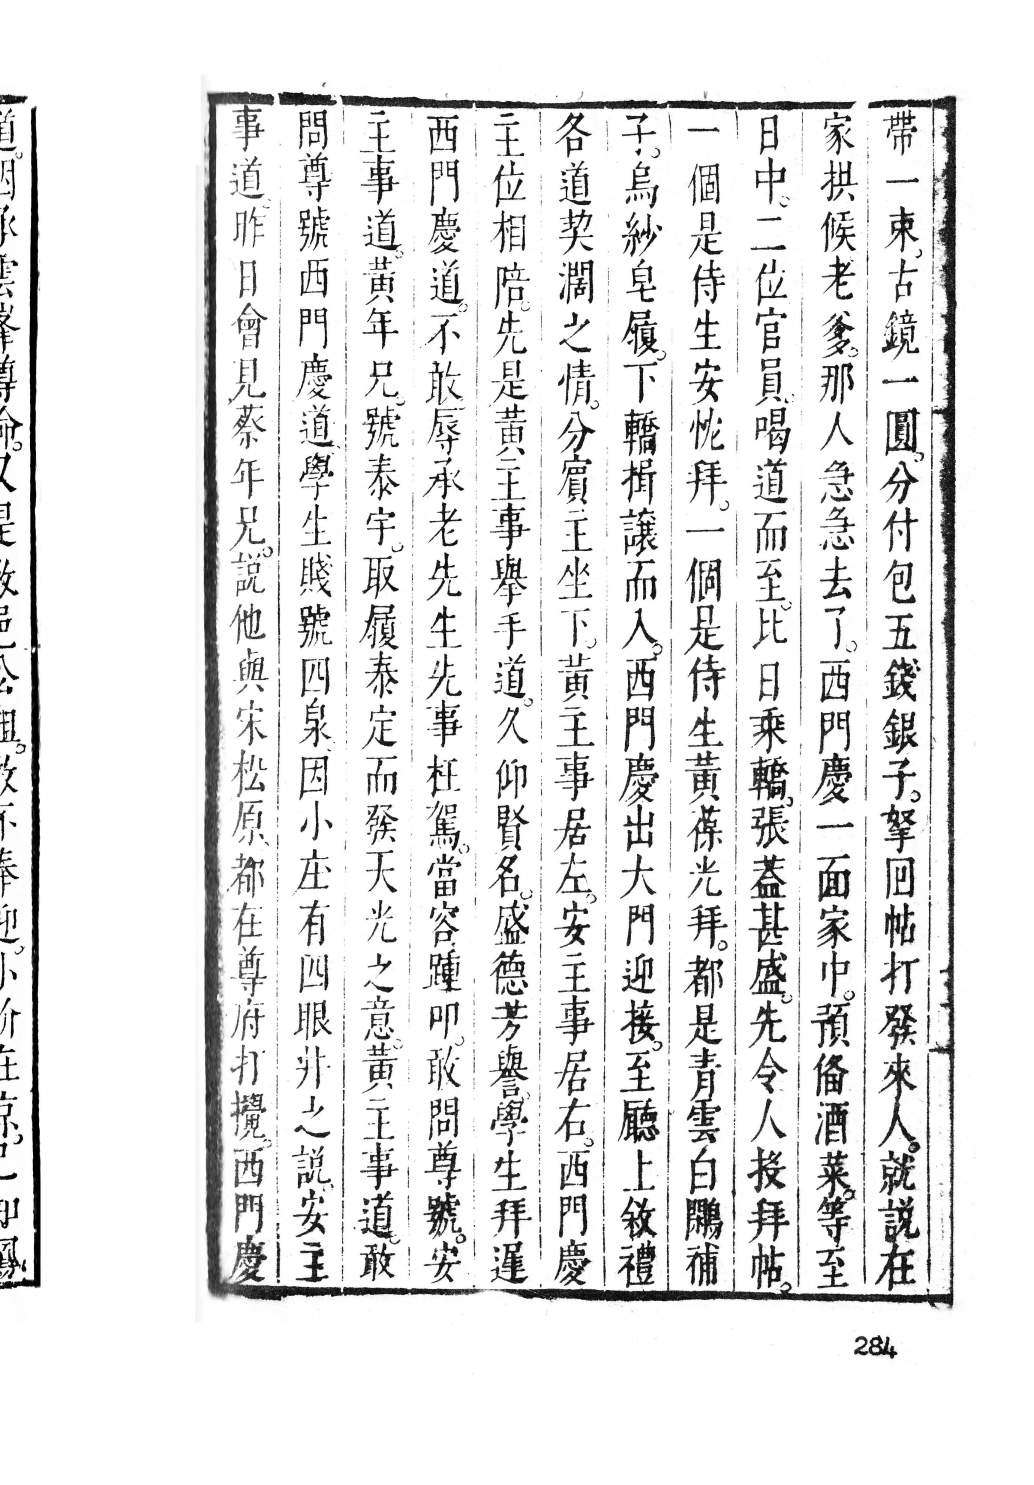 帶一束。古鏡一圓。分付包五錢銀子。拏回帖打發來人。就說在
家拱候老爹。那人急急去了。西門慶一面家中。預俻酒菜。等至
日中。二位官員。喝道而至。比日乘轎。張蓋甚盛。先令人投拜帖。
一個是侍生安忱拜。一個是侍生黃葆光拜。都是青雲白鷴補
子。烏紗皂履。下轎揖讓而入。西門慶出大門迎接。至廳上敘禮
各道契濶之情。分賓主坐下。黃主事居左。安主事居右。西門慶
主位相陪。先是黃主事舉手道。久仰賢名。盛德芳譽。學生拜遲
西門慶道。不敢。辱承老先生先事枉駕。當容踵叩。敢問尊號。安
主事道。黃年兄。號泰宇。取履泰定而發天光之意。黃主事道。敢
問尊號西門慶道。學生賤號四泉。因小庄有四眼井之說。安主
事道。昨日會見蔡年兄。說他與宋松原。都在尊府打攪。西門慶
道。因承雲峯尊命。又是敝邑公祖。敢不奉迎。小价在京。已知鳳
284